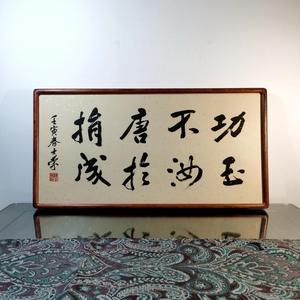 功不唐捐
玉汝於成
壬寅春